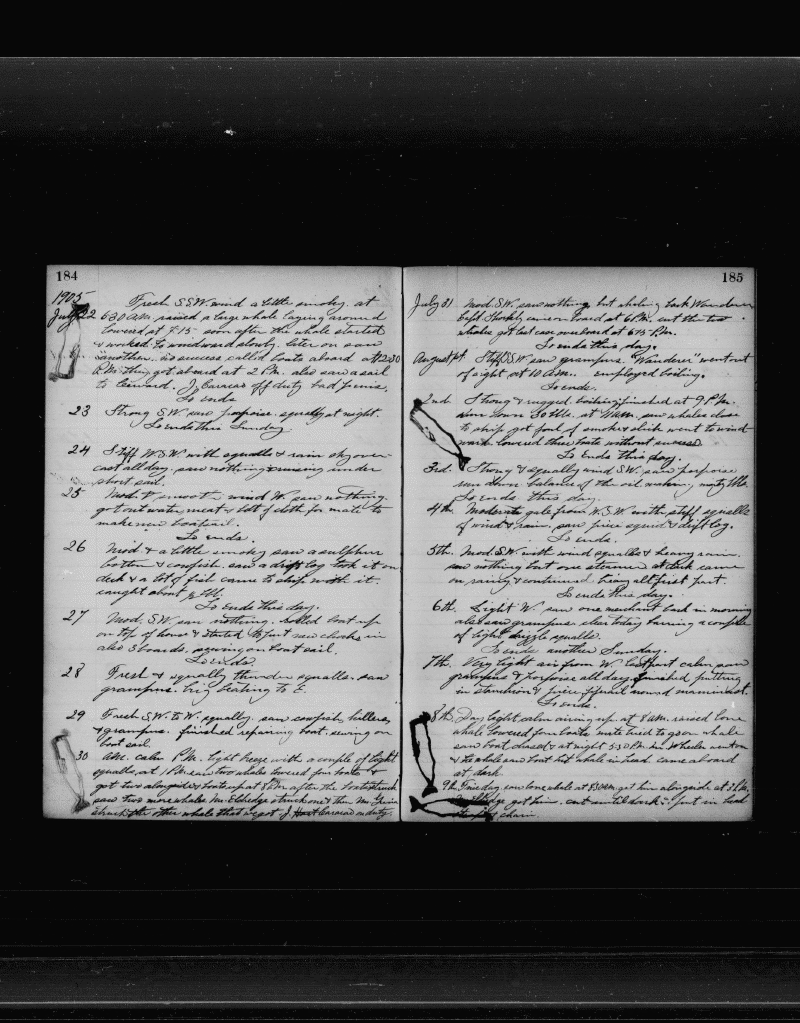 184
1905
July 22 Fresh S.S.W. wind a little smoky. at
6.30 A.M. raised a large whale laying around
lowered at 7.15 soon after the whale started
& worked to windward slowly. later on saw
another. no success called boats aboard at 12.30
P.M. they got aboard at 2 P.M. also saw a sail
to leeward. J. off duty bad penis.
So ends
23 Strong S.W. saw porpoise. squally at night.
So ends this Sunday
24 Stiff W.S.W. with squalls & rain sky over
cast all day. saw nothing cruising under
short sail.
25 Mod. & smooth wind W. saw nothing
got out water, meat & bolt of cloth for mate to
make new boatsail.
So ends.
26 Mod. & a little smoky saw a sulphur
bottom & cowfish. saw a drift log took it on
deck & a lot of fish came to ship with it.
caught about
So ends this day.
27 Mod. S.W. saw nothing. boat up
on top of house & started to put new chocks in
also 3 boards. sewing on boat sail.
So ends.
28 Fresh & squally thunder squalls. saw
grampus. brig beating to E.
29 Fresh S.W. to W. squally. saw cowfish, killers,
& grampus. finished repairing boat. sewing on
boat sail.
30 A.M. calm P.M. light breeze with a couple of light
squalls. at 1 P.M. saw two whales lowered four boats &
got two alongside & boats up at 8 P.M. after the boats struck
saw two more whales Mr. Eldredge struck one & then Mr.
struck the other whale that we got. J. on duty.
185
July 31 Mod. S.W. saw nothing but whaling bark Wanderer
Capt. came on board at 6 P.M. cut the two
whales got last case overboard at 6.15 P.M.
So ends this day.
August 1st Stiff S.S.W. saw grampus. "Wanderer" went out
of sight at 10 A.M. Employed boiling.
So ends.
2nd Strong & rugged. boiling finished at 9 P.M.
down 30 bbls. at saw whales close
to ship got foul of smoke & slick went to wind
ward lowered three boats without success.
So ends this day.
3rd Strong & squally wind S.W. saw porpoise
run down balance of the oil making bbls.
So ends this day.
4th Moderate gale from W.S.W. with stiff squalls
of wind & rain. saw piece squid & drift log.
So ends.
5th Mod. S.W. with wind squalls & heavy rain.
saw nothing but one steamer at dark came
on rainy & continued heavy all first part.
So ends this day.
6th Light W. saw one merchant bark in morning
also saw grampus clear today barring a couple
of light drizzle squalls.
So ends another Sunday.
7th Very light air from W. last part calm saw
grampus & porpoise all day. finished putting
in stanchion & piece
So ends.
8th Day light calm airing up at 8 A.M. raised lone
whale lowered four boats mate tried to go on whale
saw boat closed & at night 5.30 P.M.
& the whale saw boat hit whale in head came aboard
at dark.
9th Fine day saw lone whale at 8.30 A.M. got him alongside at 3 P.M.
got him. cut until dark. put in head
chain.